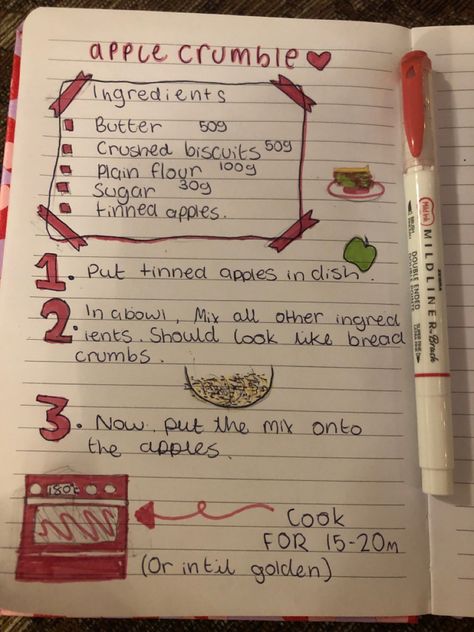 apple crumble
Ingredients
Butter 50g
Crushed biscuits 50g
Plain flour 100g
Sugar 30g
tinned apples.
1. Put tinned apples in dish.
2. In a bowl, Mix all other ingred
ients. Should look like bread
crumbs.
3. Now, put the mix onto
the apples.
180°c
Cook
FOR 15-20m
(Or intil golden)
Mild ink
MILDLINER Brush
DOUBLE ENDED
ZEBRA